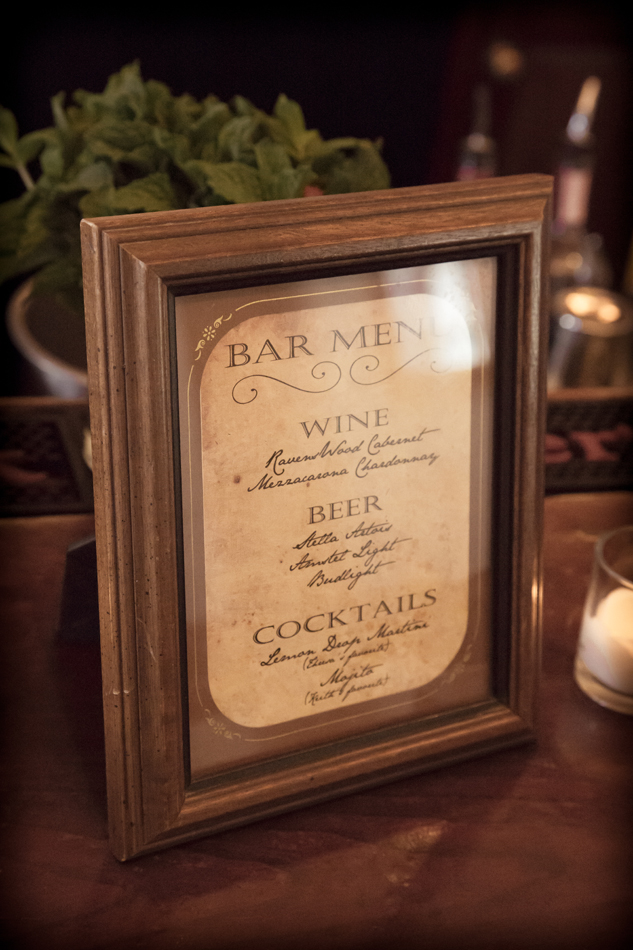 BAR MENU
WINE
RavensWood Cabernet
Mezzacarona Chardonnay
BEER
Stella Artois
Amstel Light
Budlight
COCKTAILS
Lemon Drop Martini
favorite)
Mojito
(Keith's favorite)